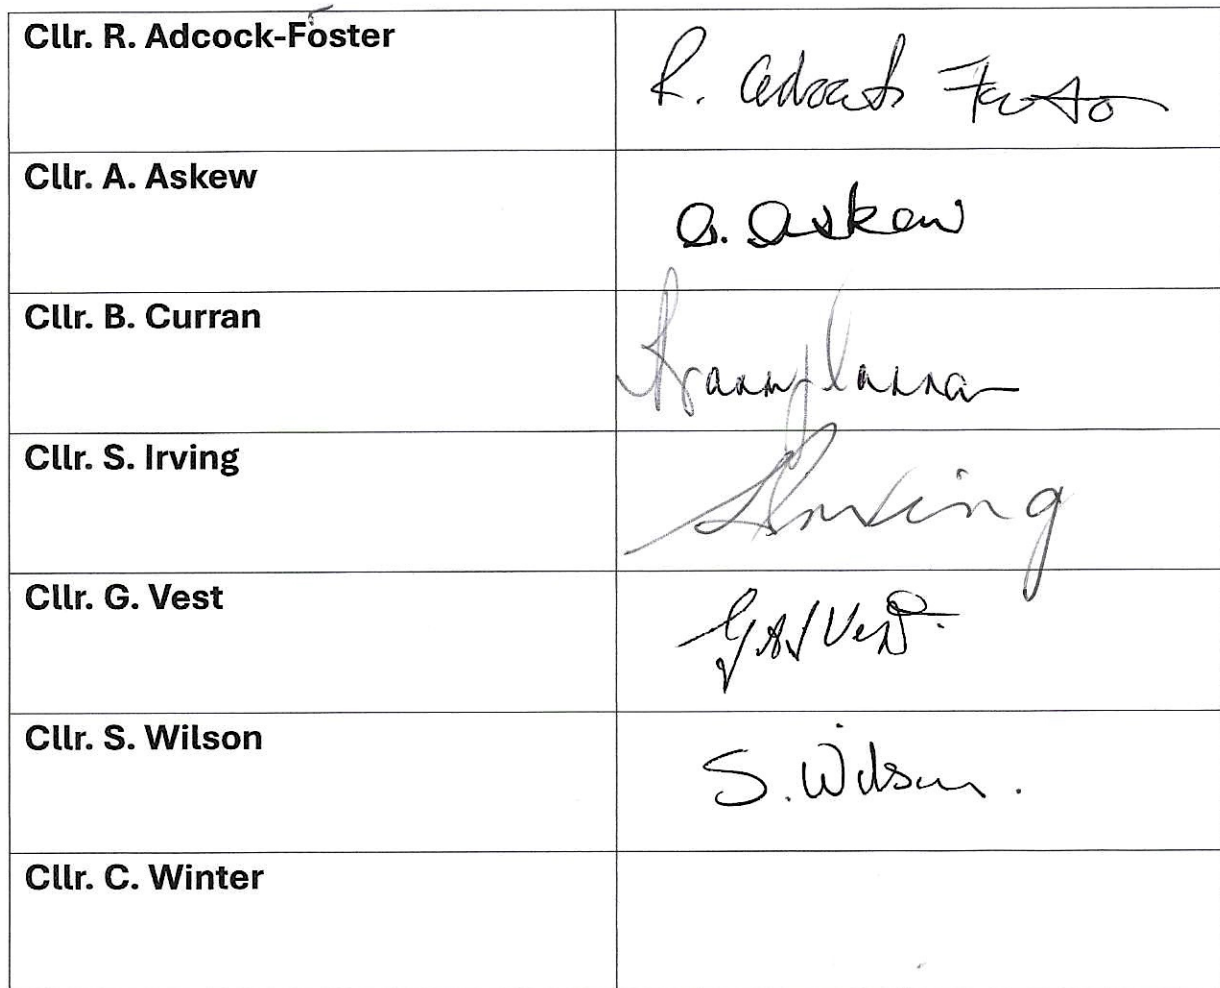 Cllr. R. Adcock-Foster
R. Adcock Foster
Cllr. A. Askew
A. Askew
Cllr. B. Curran
Curran
Cllr. S. Irving
S Irving
Cllr. G. Vest
Vest.
Cllr. S. Wilson
S. Wilson.
Cllr. C. Winter